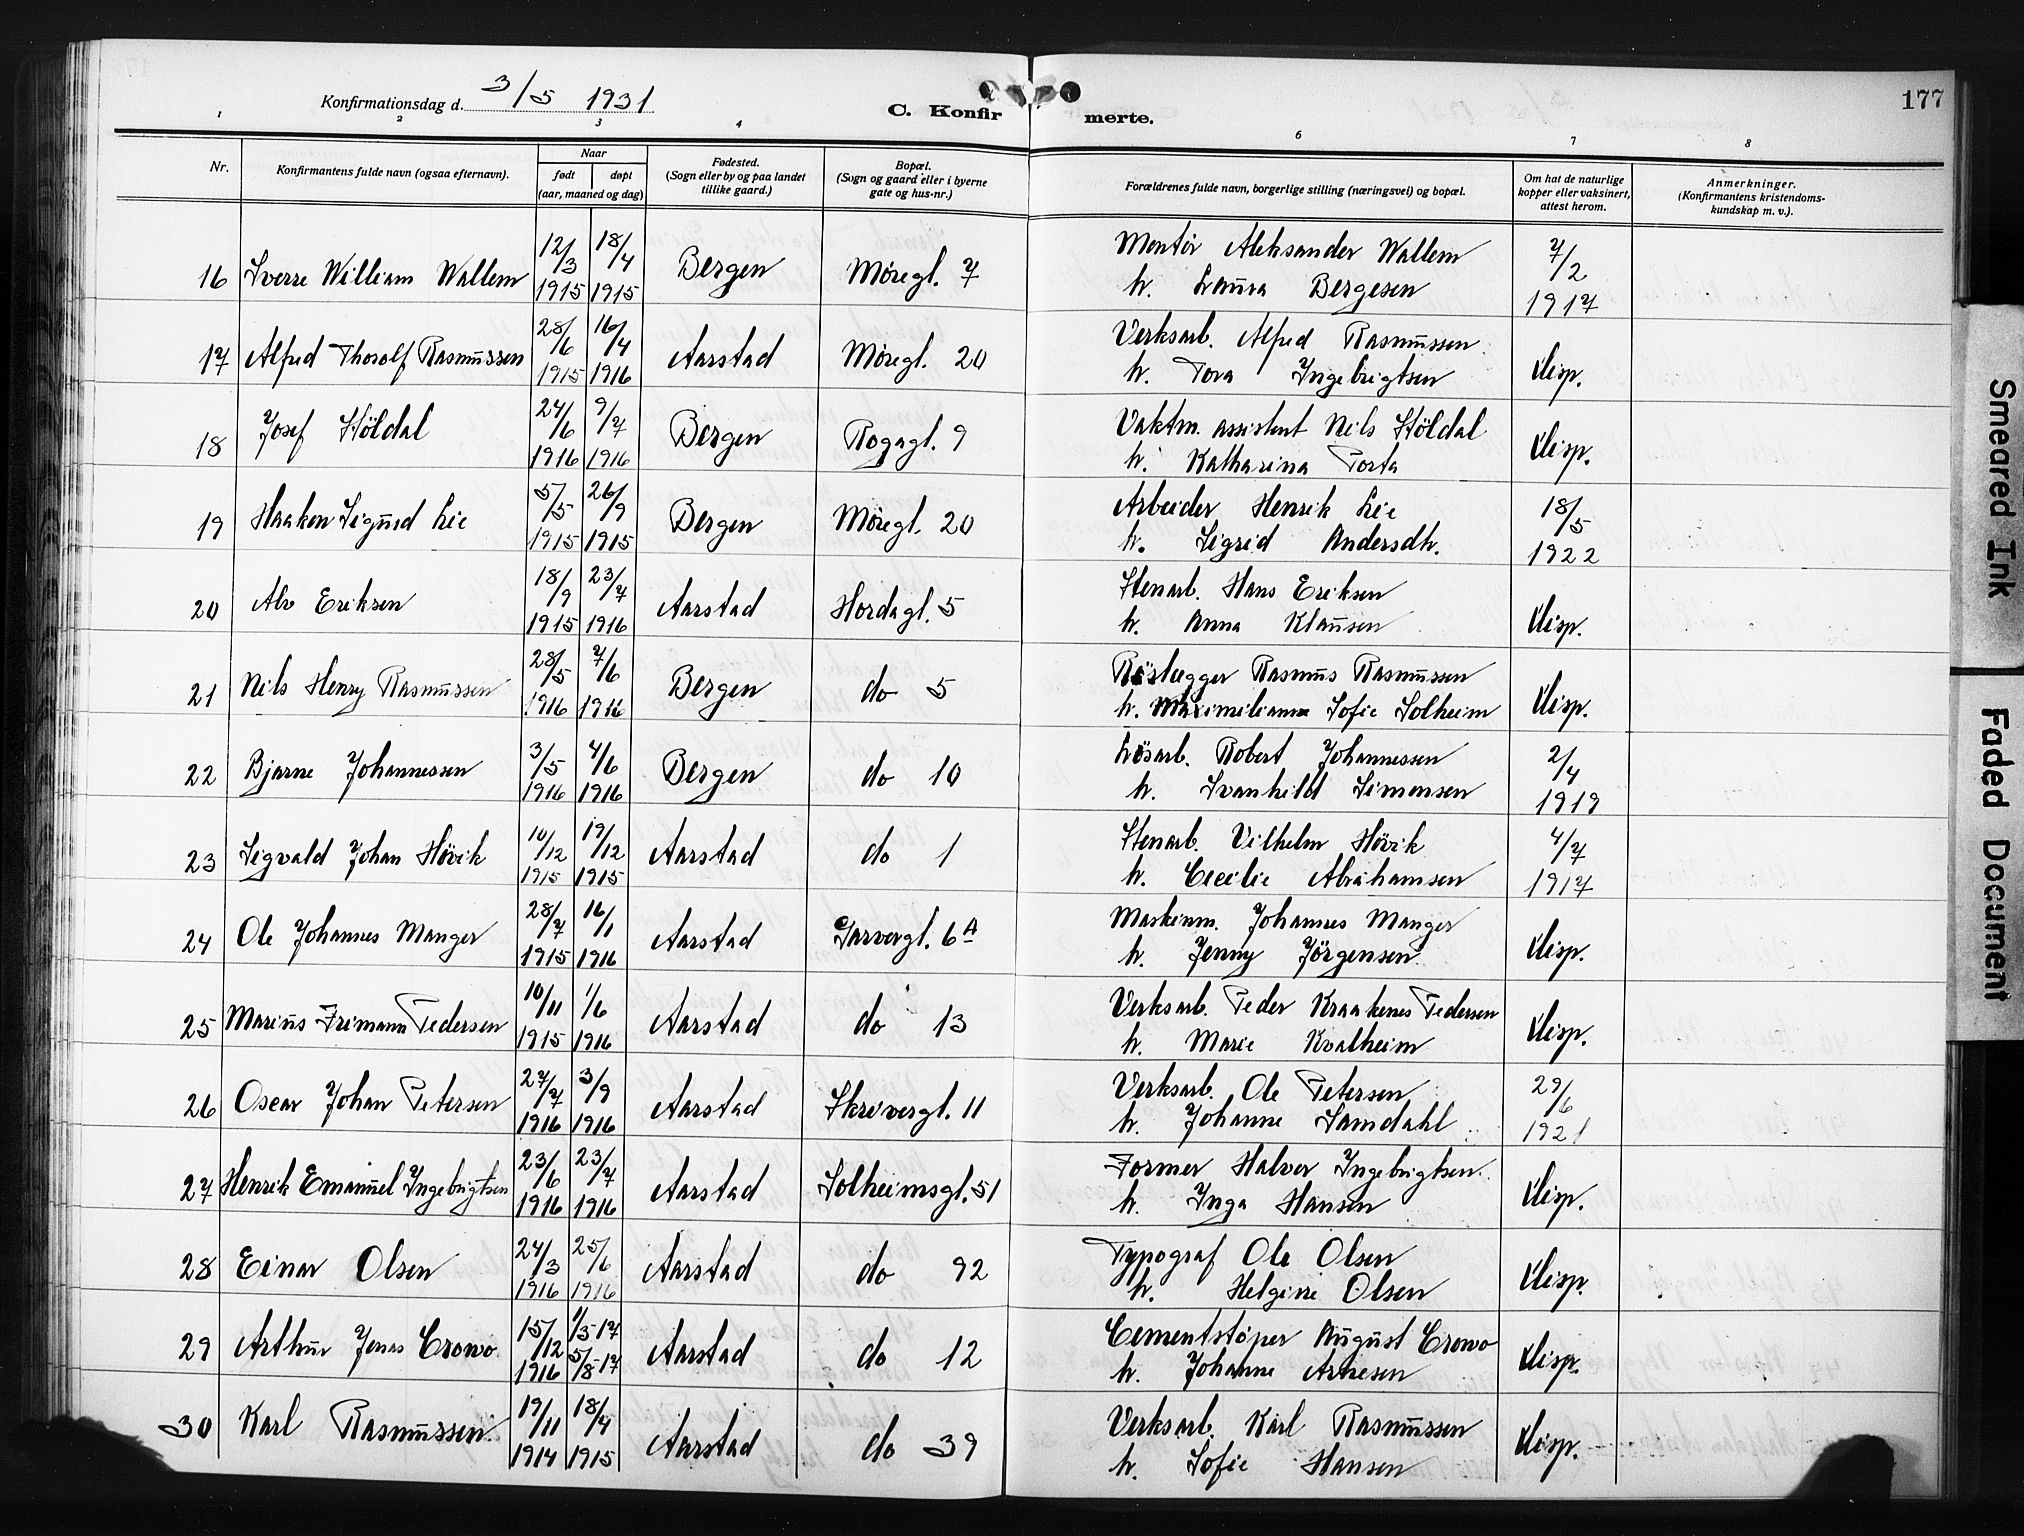 177
Konfirmationsdag d. 3/5 1931
C. Konfirmerte.
1 2 3 4 6 7 8
Nr.
Konfirmantens fulde navn (ogsaa efternavn).
Naar
født døpt
(aar, maaned og dag)
Fødested.
(Sogn eller by og paa landet
tillike gaard.)
Bopæl.
(Sogn og gaard eller i byerne
gate og hus-nr.)
Forældrenes fulde navn, borgerlige stilling (næringsvei) og bopæl.
Om hat de naturlige
kopper eller vaksinert,
attest herom.
Anmerkninger.
(Konfirmantens kristendoms-
kundskap m. v.).
16 Sverre William Wallem 12/3 1915 18/4 1915 Bergen Møregt. 7 Montør Aleksander Wallem 7/2 1917
h. Laura Bergesen
17 Alfred Thorolf Rasmussen 28/6 1915 16/4 1916 Aarstad Møregt. 20 Verksarb. Alfred Rasmussen disp.
h. Tora Ingebrigtsen
18 Josef Støldal 24/6 1916 9/7 1916 Bergen Rogagt. 9 Vaktm. assistent Nils Støldal disp.
h. Katharina Torta
19 Haakon Sigurd Lie 5/5 1915 26/9 1915 Bergen Møregt. 20 Arbeider Henrik Lie 18/5 1922
h. Sigrid Andersdh.
20 Alv Eriksen 18/9 1915 23/7 1916 Aarstad Hordagt. 5 Stenarb. Hans Eriksen disp.
h. Anna Klausen
21 Nils Henry Rasmussen 28/5 1916 7/6 1916 Bergen do 5 Rørlægger Rasmus Rasmussen disp.
h. Maximiliane Sofie Solheim
22 Bjarne Johannessen 3/5 1916 4/6 1916 Bergen do 10 Løsarb. Robert Johannessen 2/4 1919
h. Svanhild Simonsen
23 Sigvald Johan Høvik 10/12 1915 19/12 1915 Aarstad do 1 Stenarb. Vilhelm Høvik 4/7 1917
h. Cecilie Abrahamsen
24 Ole Johannes Manger 28/7 1915 16/1 1916 Aarstad Garvergt. 6A Maskinm. Johannes Manger disp.
h. Jenny Jörgensen
25 Marius Frimann Pedersen 10/11 1915 1/6 1916 Aarstad do 13 Verksarb. Peder Kraakenes Pedersen disp.
h. Marie Kvalheim
26 Oscar Johan Petersen 27/7 1916 3/9 1916 Aarstad Skrivergt. 11 Verksarb. Ole Petersen 29/6 1921
h. Johanne Samdahl
27 Henrik Emanuel Ingebrigtsen 23/6 1916 23/7 1916 Aarstad Solheimsgt. 51 Former Halver Ingebrigtsen disp.
h. Inga Hansen
28 Einar Olsen 24/3 1916 25/6 1916 Aarstad do 92 Typograf Ole Olsen disp.
h. Helgine Olsen
29 Arthur Jonas Crowo 15/12 1916 1/5-17 5/8-17 Aarstad do 12 Cementstøper August Crowo disp.
h. Johanne Arnesen
30 Karl Rasmussen 19/11 1914 18/4 1915 Aarstad do 39 Verksarb. Karl Rasmussen disp.
h. Sofie Hansen
Smeared Ink
Faded Document